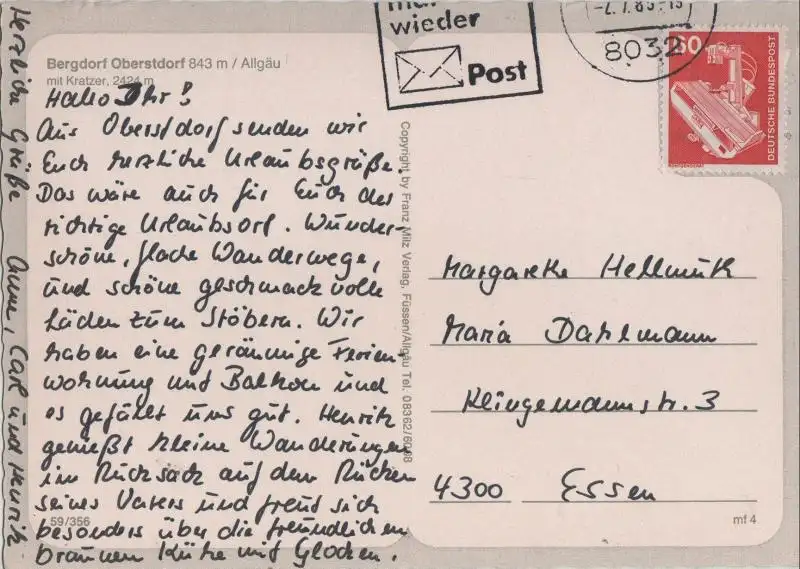 Bergdorf Oberstdorf 843 m / Allgäu
mit Kratzer, 2424 m
Hallo Ihr!
Aus Oberstdorf senden wir
Euch herzliche Urlaubsgrüße.
Das wäre auch für Euch der
richtige Urlaubsort. Wunder-
schöne, flache Wanderwege,
und schöne geschmackvolle
Läden zum Stöbern. Wir
haben eine geräumige Ferien
wohnung mit Balkon und
es gefällt uns gut. Henrik
genießt kleine Wanderungen
im Rucksack auf dem Rücken
seines Vaters und freut sich
besonders über die freundlichen
braunen Kühe mit Glocken.
Herzliche Grüße Anne, Carl und Henrik
59/356
Copyright by Franz Milz Verlag, Füssen/Allgäu Tel. 08362/6068
mal
wieder
Post
8032
60
DEUTSCHE BUNDESPOST
RÖNTGENGERÄT
Margarethe Hellmuth
Maria Dahlmann
Klingemannstr. 3
4300 Essen
mf 4